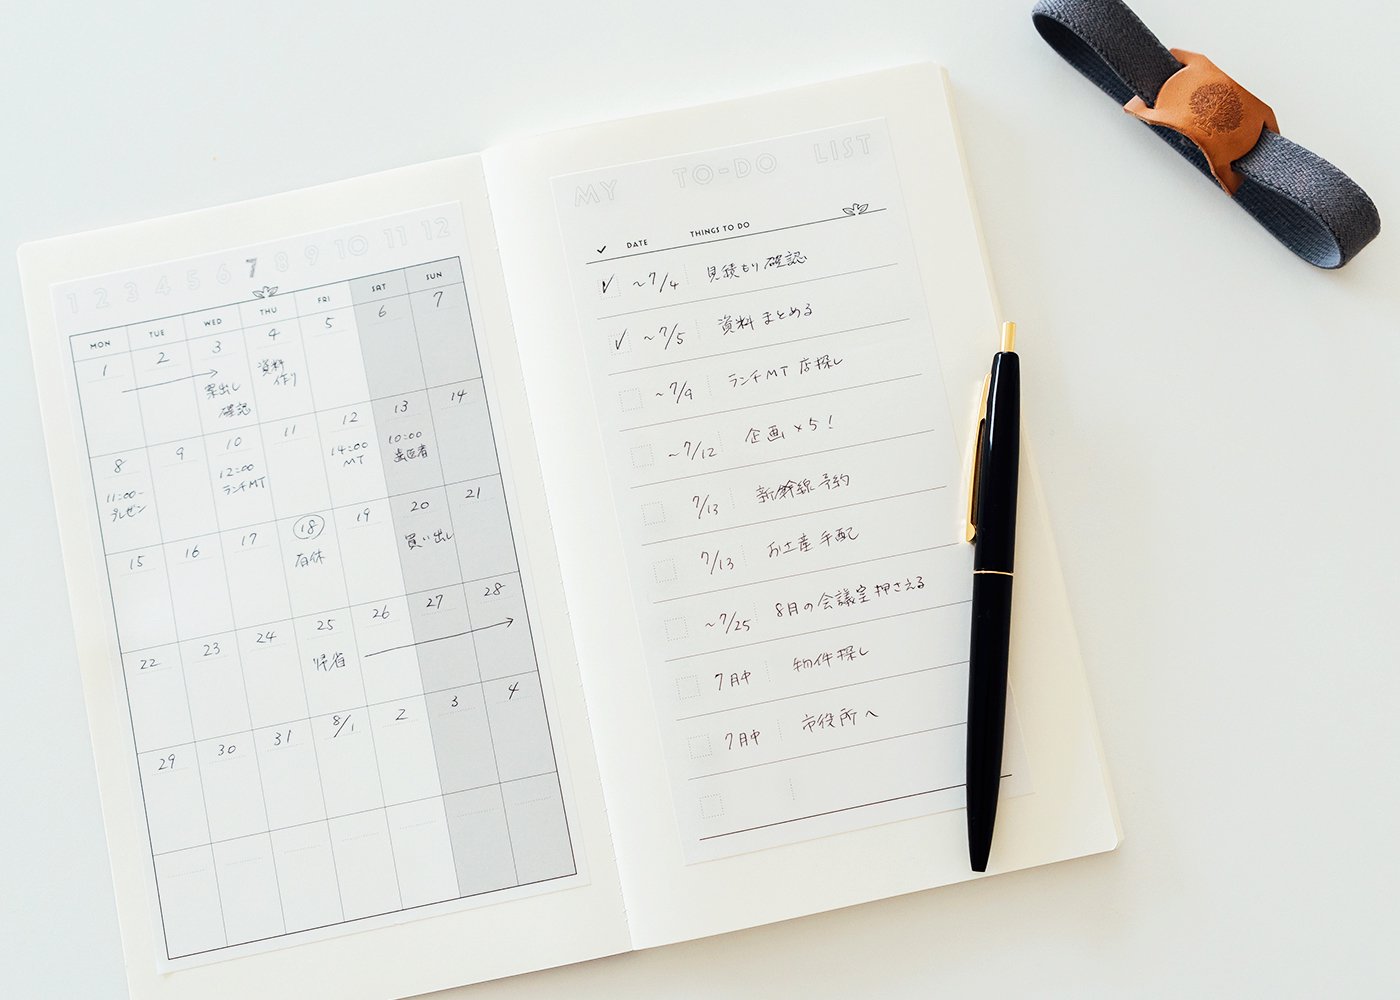 1 2 3 4 5 6 7 8 9 10 11 12
MON TUE WED THU FRI SAT SUN
1 2 3 4 5 6 7
案出し 資料
確認 作り
8 9 10 11 12 13 14
11:00~ 12:00 14:00 10:00
プレゼン ランチMT MT 歯医者
15 16 17 18 19 20 21
有休 買い出し
22 23 24 25 26 27 28
帰省
29 30 31 8/1 2 3 4
MY TO-DO LIST
DATE THINGS TO DO
~7/4 見積もり確認
~7/5 資料まとめる
~7/9 ランチMT 店探し
~7/12 企画×5!
7/13 新幹線予約
7/13 お土産手配
~7/25 8月の会議室押さえる
7月中 物件探し
7月中 市役所へ